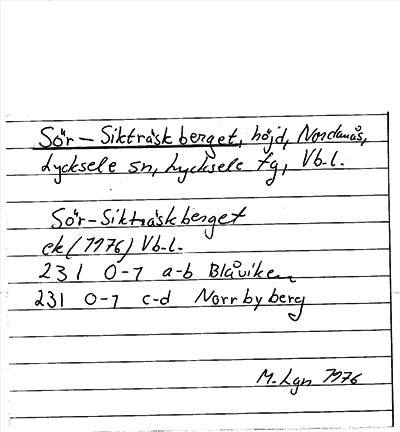 Sör-Sikträskberget, höjd, Nordanås,
Lycksele sn, Lycksele tg, Vb-l.
Sör-Sikträskberget
ek (1976) Vb-l.
231 0-1 a-b Blåviken
231 0-1 c-d Norrbyberg
M. Lgn 1976